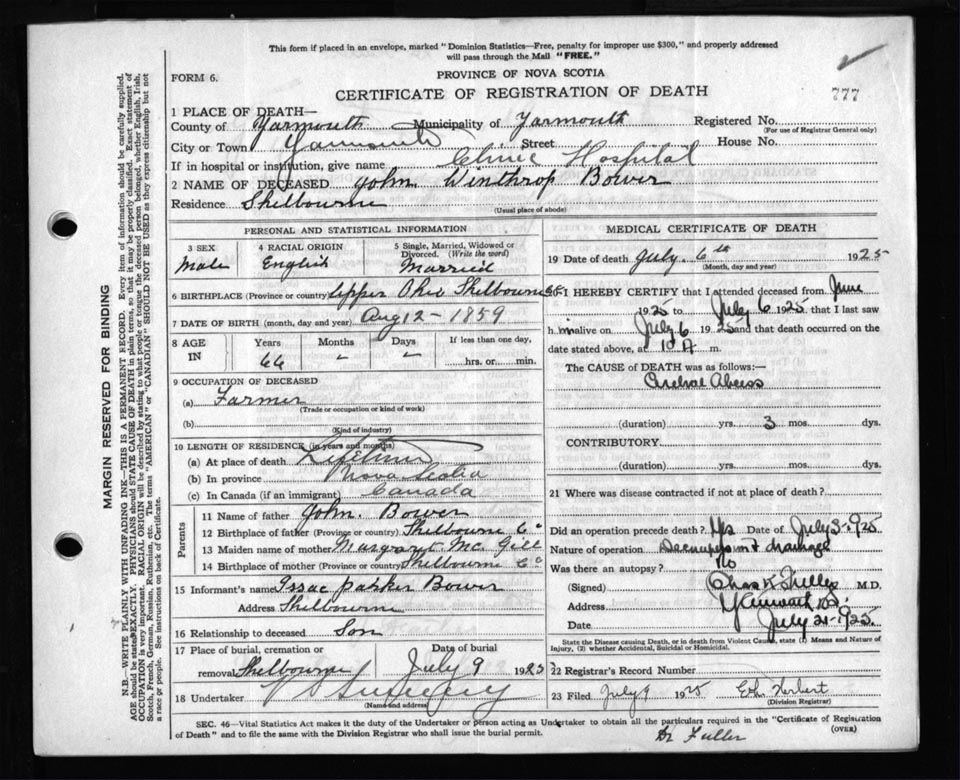 This form if placed in an envelope, marked "Dominion Statistics—Free, penalty for improper use $300," and properly addressed
will pass through the Mail "FREE."
FORM 6.
PROVINCE OF NOVA SCOTIA
CERTIFICATE OF REGISTRATION OF DEATH
777
1 PLACE OF DEATH—
County of Yarmouth Municipality of Yarmouth Registered No.
(For use of Registrar General only)
City or Town Yarmouth Street House No.
If in hospital or institution, give name Clinic Hospital
2 NAME OF DECEASED John. Winthrop Bower
Residence Shelbourne
(Usual place of abode)
PERSONAL AND STATISTICAL INFORMATION
3 SEX 4 RACIAL ORIGIN 5 Single, Married, Widowed or
Divorced. (Write the word)
Male English Married
6 BIRTHPLACE (Province or country) Upper Ohio Shelbourne
7 DATE OF BIRTH (month, day and year) Aug 12 - 1859
8 AGE IN Years Months Days If less than one day,
66 - - hrs. or min.
9 OCCUPATION OF DECEASED
(a) Farmer
(Trade or occupation or kind of work)
(b)
(Kind of industry)
10 LENGTH OF RESIDENCE (in years and months)
(a) At place of death Lifetime
(b) In province Nova Scotia
(c) In Canada (if an immigrant) Canada
Parents
11 Name of father John. Bower
12 Birthplace of father (Province or country) Shelbourne Co
13 Maiden name of mother Margaret. Mc Gill
14 Birthplace of mother (Province or country) Shelbourne Co
15 Informant's name Issac Parker Bower
Address Shelbourne
16 Relationship to deceased Son
17 Place of burial, cremation or Date of burial
removal Shelbourne July 9 1925
18 Undertaker
(Name and address)
MEDICAL CERTIFICATE OF DEATH
19 Date of death July. 6th 1925
(Month, day and year)
20 I HEREBY CERTIFY that I attended deceased from June
1925 to July 6 1925, that I last saw
h im alive on July 6 1925 and that death occurred on the
date stated above, at 10 A m.
The CAUSE OF DEATH was as follows:—
Abcess
(duration) yrs. 3 mos. dys.
CONTRIBUTORY
(duration) yrs. mos. dys.
21 Where was disease contracted if not at place of death?
Did an operation precede death? Yes Date of July 3-1925
Nature of operation & drainage
Was there an autopsy? No
(Signed) M.D.
Address Yarmouth NS
Date July 21-1925
State the Disease causing Death, or in death from Violent Causes, state (1) Means and Nature of
Injury, (2) whether Accidental, Suicidal or Homicidal.
22 Registrar's Record Number
23 Filed July 9 1925 Herbert
(Division Registrar)
SEC. 46—Vital Statistics Act makes it the duty of the Undertaker or person acting as Undertaker to obtain all the particulars required in the "Certificate of Registration
of Death" and to file the same with the Division Registrar who shall issue the burial permit.
(OVER)
Dr Fuller
MARGIN RESERVED FOR BINDING
N.B.—WRITE PLAINLY WITH UNFADING INK—THIS IS A PERMANENT RECORD. Every item of information should be carefully supplied.
AGE should be stated EXACTLY. PHYSICIANS should STATE CAUSE OF DEATH in plain terms, so that it may be properly classified. Exact statement of
OCCUPATION is very important. RACIAL ORIGIN will be described by stating to what people or tongue the deceased person belonged, whether English, Irish,
Scotch, French, German, Russian, Ruthenian, etc. The terms "AMERICAN" or "CANADIAN" SHOULD NOT BE USED as they express citizenship but not
a race or people. See instructions on back of Certificate.